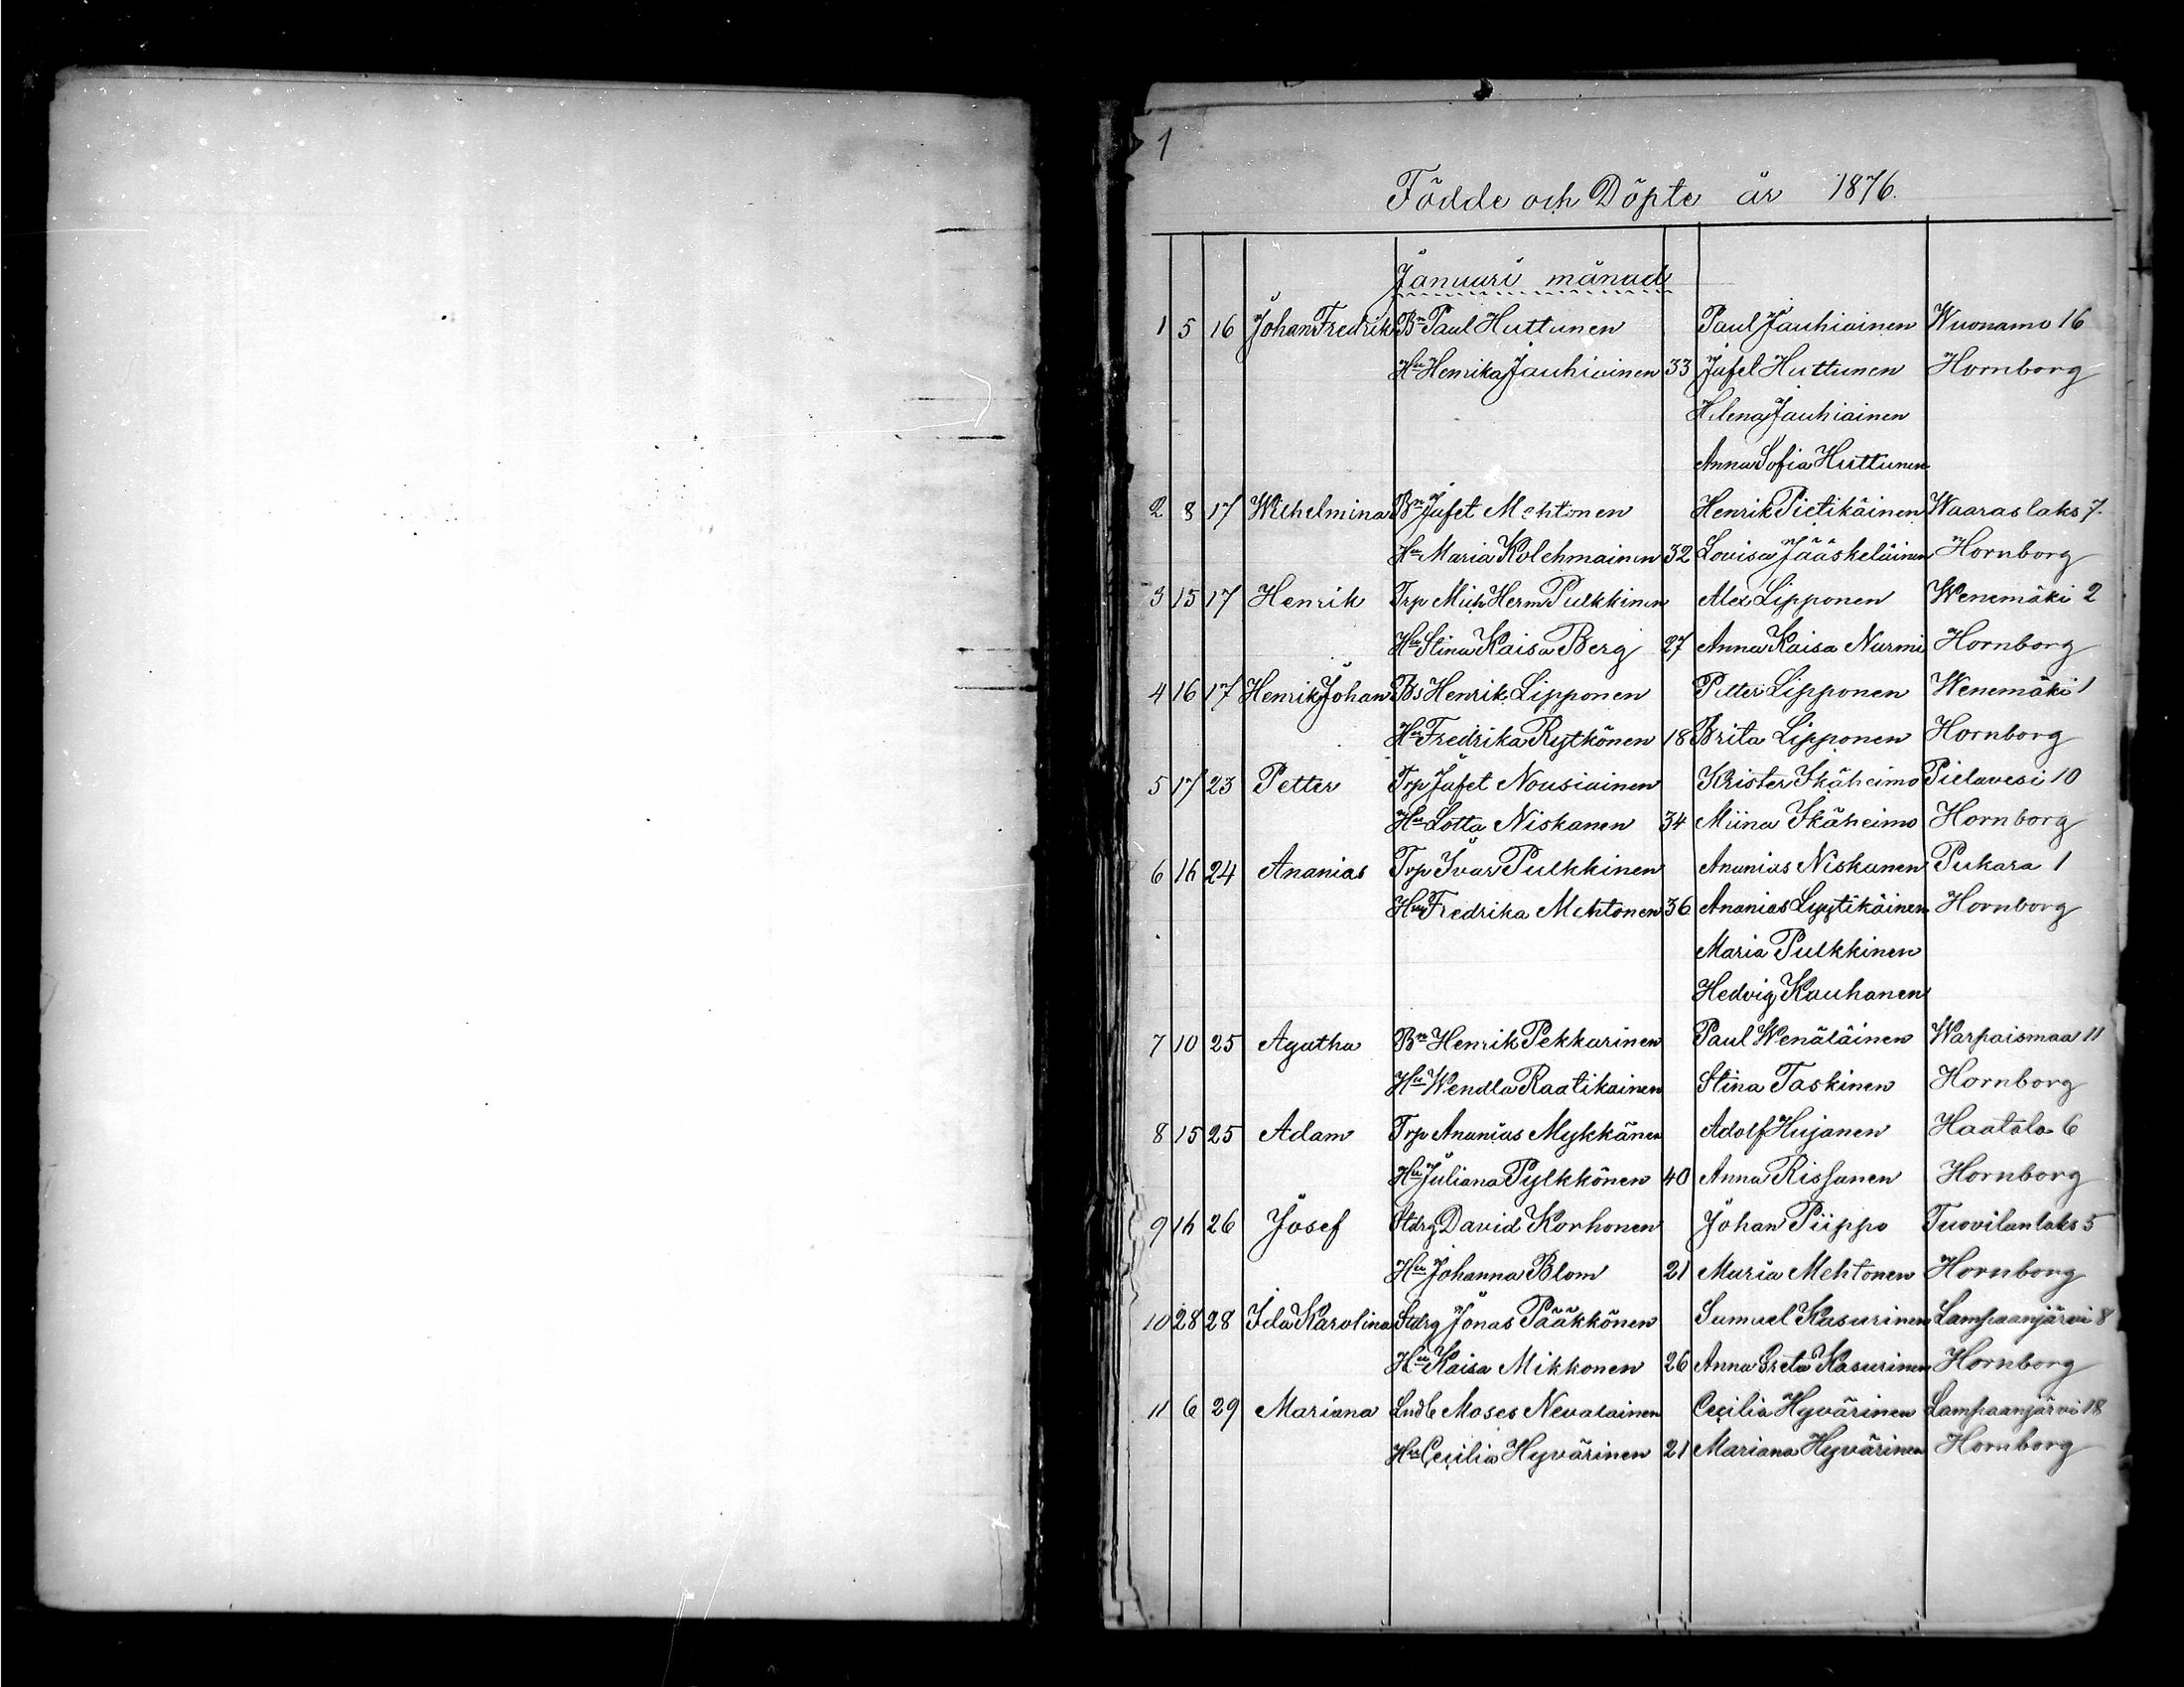 1
Födde och Döpte år 1876.
Januari månad
1 5 16 Johan Fredrik Bn Paul Huttunen Paul Jauhiainen Wuonamo 16
Hu Henrika Jauhiainen 33 Jafet Huttunen Hornborg
Helena Jauhiainen
Anna Sofia Huttunen
2 8 17 Wilhelmina Bn Jafet Mehtonen Henrik Pietikäinen Waaraslaks 7.
Hu Maria Kolehmainen 32 Lovisa Jääskeläinen Hornborg
3 15 17 Henrik Trp Mich Herm Pulkkinen Alex Lipponen Wenemäki 2
Hu Stina Kaisa Berg 27 Anna Kaisa Nurmi Hornborg
4 16 17 Henrik Johan Bs Henrik Lipponen Petter Lipponen Wenemäki 1
Hu Fredrika Rytkönen 18 Brita Lipponen Hornborg
5 17 23 Petter Trp Jafet Nousiainen Krister Ikäheimo Pielavesi 10
Hu Lotta Niskanen 34 Miina Ikäheimo Hornborg
6 16 24 Ananias Trp Ivar Pulkkinen Ananias Niskanen Pukara 1
Hu Fredrika Mehtonen 36 Ananias Lyytikäinen Hornborg
Maria Pulkkinen
Hedvig Kauhanen
7 10 25 Agatha Bn Henrik Pekkarinen Paul Wenäläinen Warpaismaa 11
Hu Wendla Raatikainen Stina Taskinen Hornborg
8 15 25 Adam Trp Ananias Mykkänen Adolf Hujanen Haatala 6
Hu Juliana Pylkkönen 40 Anna Rissanen Hornborg
9 16 26 Josef Stdrg David Korhonen Johan Piippo Tuovilanlaks 5
Hu Johanna Blom 21 Maria Mehtonen Hornborg
10 28 28 Ida Karolina Stdrg Jonas Pääkkönen Samuel Kasurinen Lampaanjärvi 8
Hu Kaisa Mikkonen 26 Anna Greta Kasurinen Hornborg
11 6 29 Mariana Lndb Moses Nevalainen Cecilia Hyvärinen Lampaanjärvi 18
Hu Cecilia Hyvärinen 21 Mariana Hyvärinen Hornborg